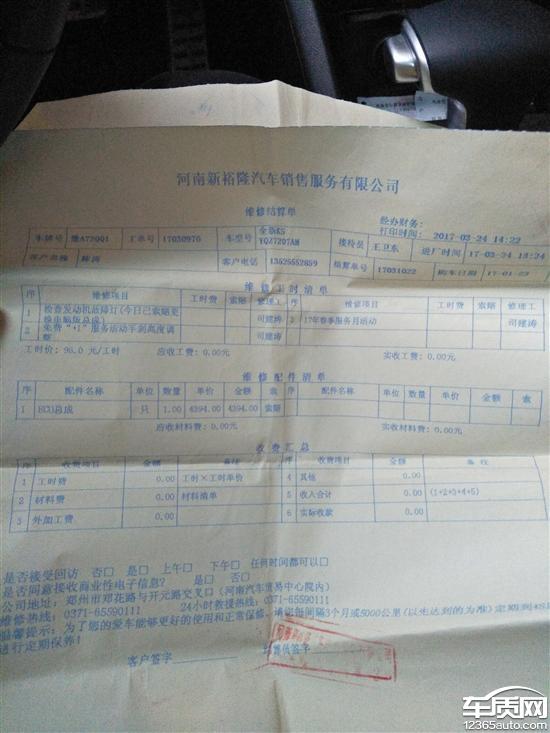 河南新裕隆汽车销售服务有限公司
维修结算单
经办财务：
打印时间： 2017-03-24 14:22
车牌号 豫A72Q01 工单号 17030976 车型号 全新K5 YQZ7207AM 接待员 王卫东 进厂时间 17-03-24 13:24
客户名称 客户电话 13525552859 结算单号 17031022 购车日期
维修工时清单
序 维修项目 工时费 索赔 修理工 序 维修项目 工时费 索赔 修理工
1 检查发动机故障灯(今日已索赔更换电脑版总成) 司建涛 3 17年春季服务月活动 司建涛
2 免费"+1"服务活动手刹高度调整 司建涛
工时价：98.0 元/工时 应收工费：0.00元 实收工费：0.00元
维修配件清单
序 配件名称 单位 数量 单价 金额 索 序 配件名称 单位 数量 单价 金额 索
1 ECU总成 只 1.00 4394.00 4394.00 索赔
应收材料费：0.00元 实收材料费：0.00元
收费汇总
序 收费项目 金额 备注 序 收费项目 金额 备注
1 工时费 0.00 工时×工时单价 4 其他 0.00
2 材料费 0.00 材料清单 5 收入合计 0.00 (1+2+3+4+5)
3 外加工费 0.00 6 实际收款 0.00
是否接受回访 否□ 是□ 上午□ 下午□ 任何时间都可以□
是否同意接收商业性电子信息？ 是□ 否□
公司地址：郑州市郑花路与开元路交叉口（河南汽车贸易中心院内）
维修热线：0371-65590111 24小时救援热线：0371-65590111
温馨提示：为了您的爱车能够更好的使用和正常保修，请您每间隔3个月或5000公里(以先达到的为准)定期到
进行定期保养！
客户签字
车质网
12365auto.com